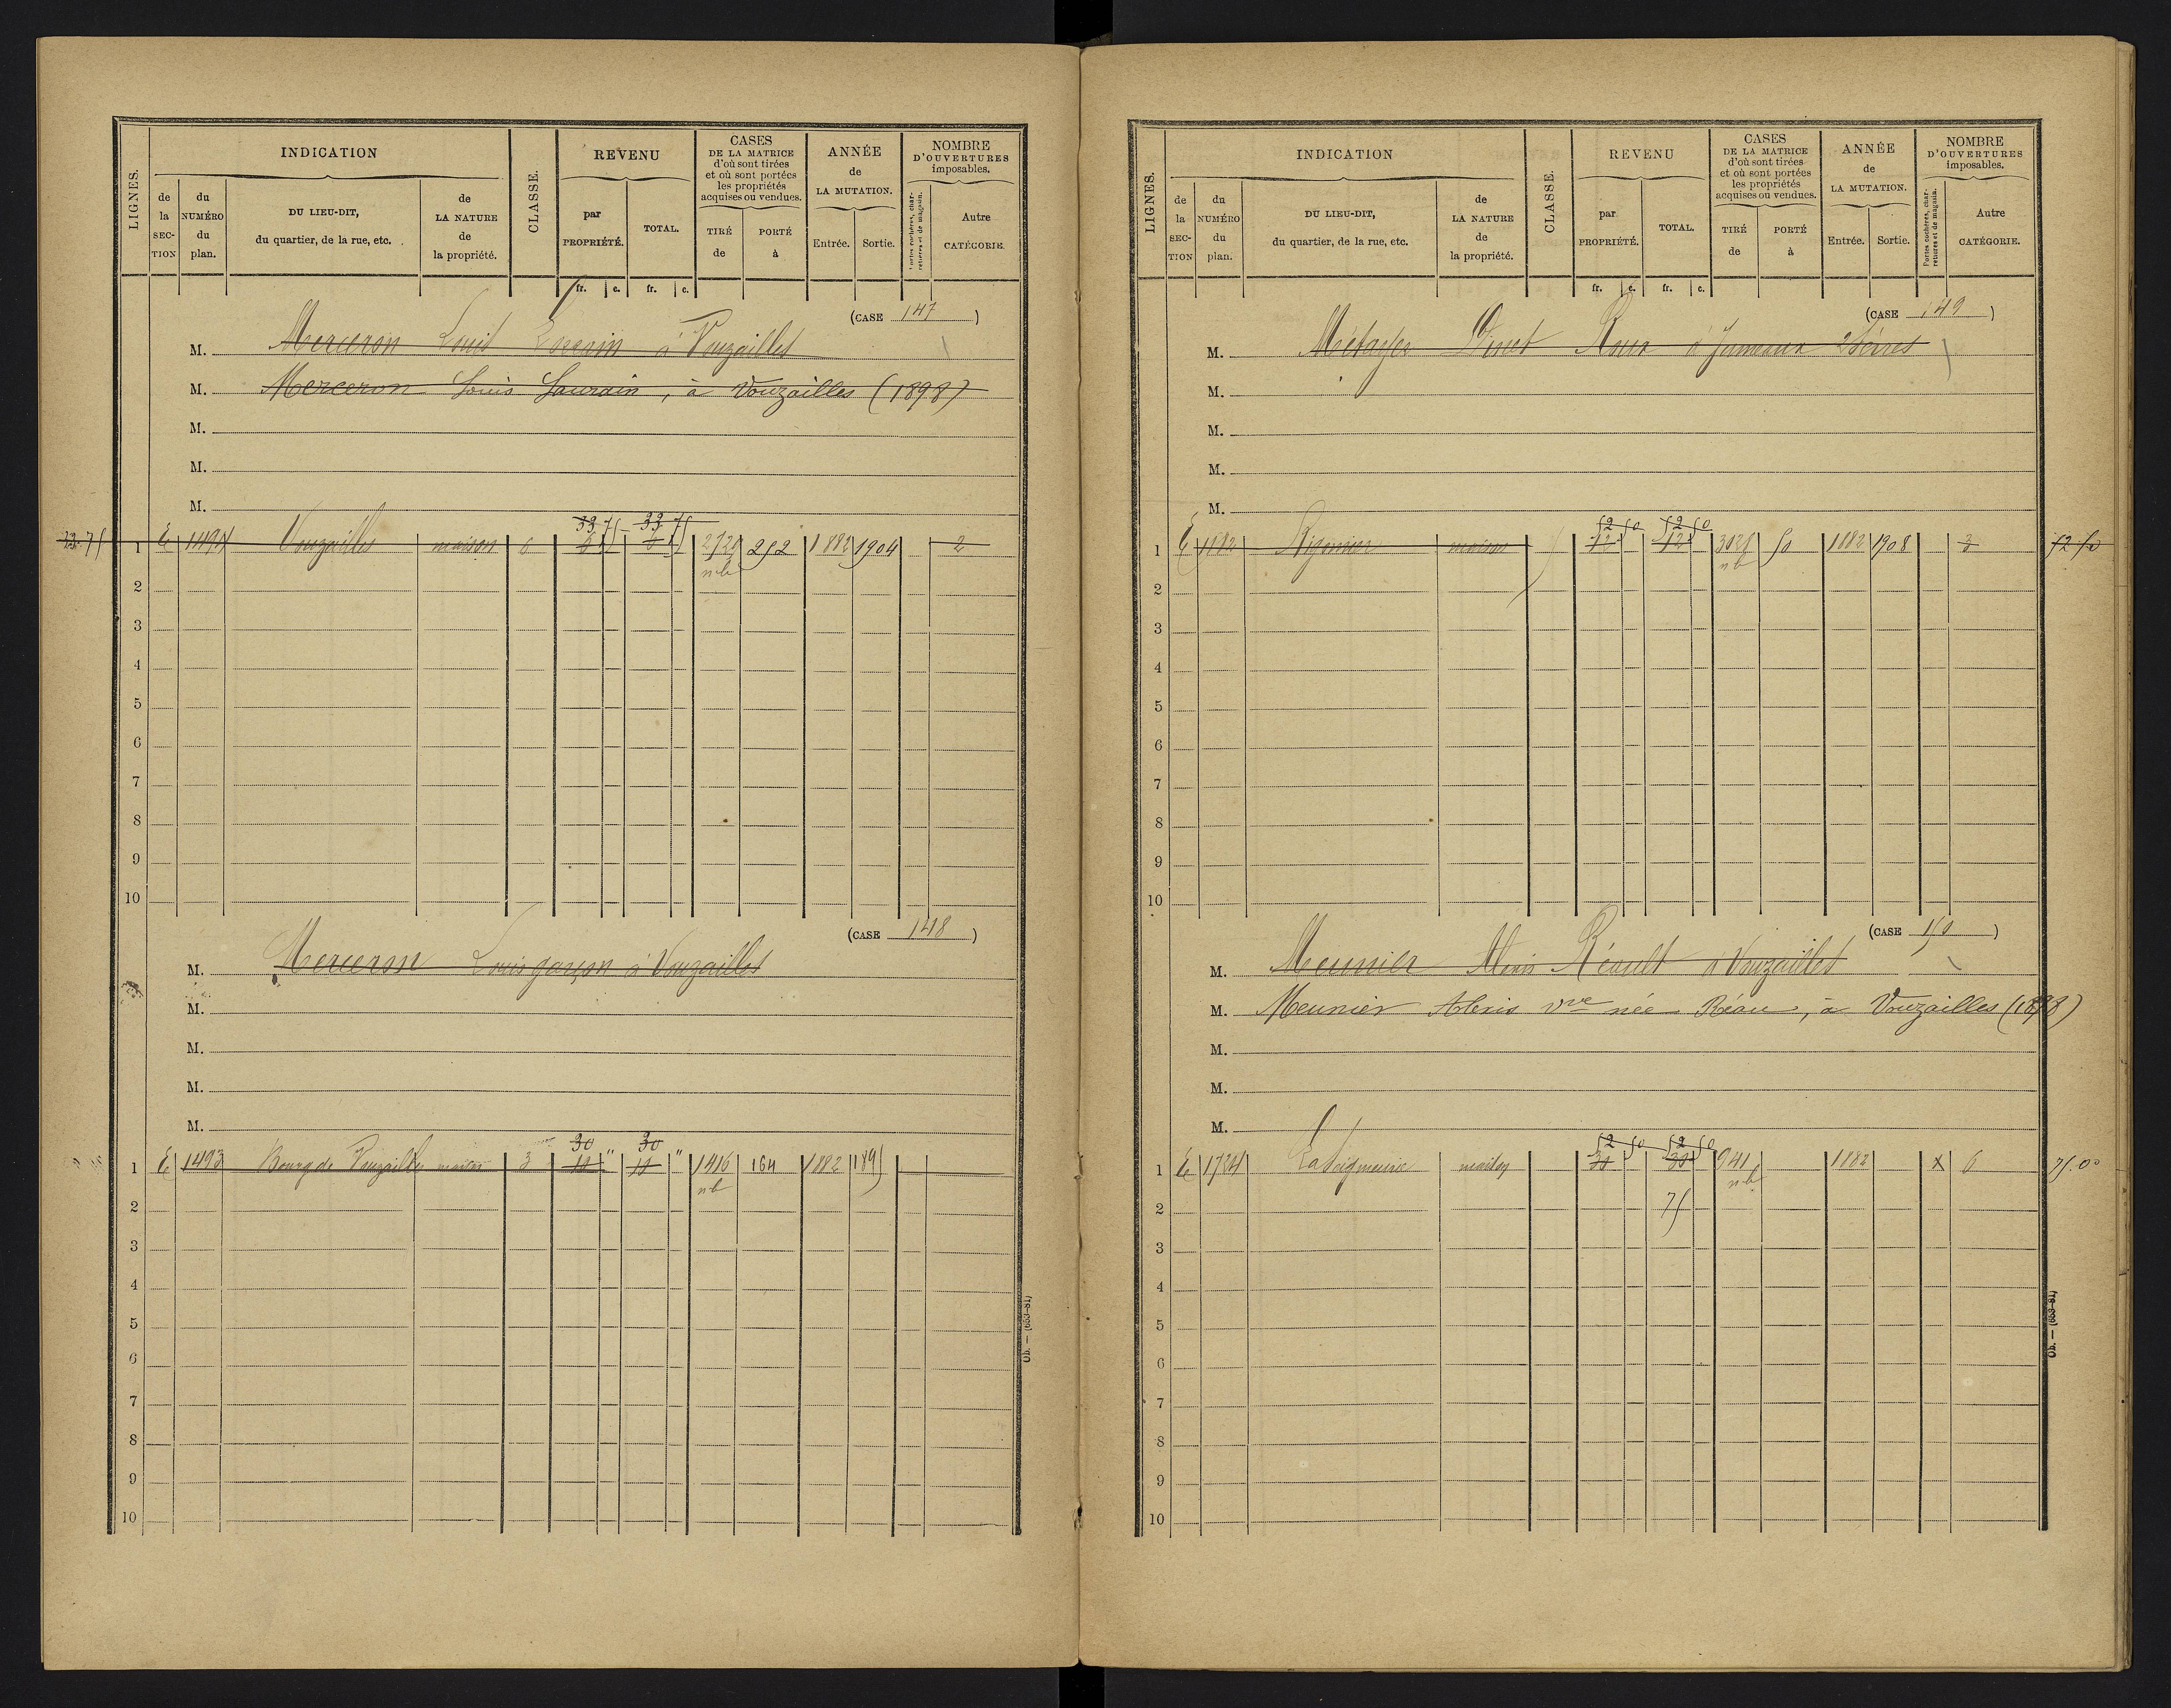 LIGNES.
INDICATION
de la SECTION
du NUMÉRO du plan.
DU LIEU-DIT, du quartier, de la rue, etc.
de LA NATURE de la propriété.
CLASSE.
REVENU
par PROPRIÉTÉ.
TOTAL.
CASES DE LA MATRICE d'où sont tirées et où sont portées les propriétés acquises ou vendues.
TIRÉ de
PORTÉ à
ANNÉE de LA MUTATION.
Entrée.
Sortie.
NOMBRE D'OUVERTURES imposables.
Portes cochères, charretières et de magasin.
Autre CATÉGORIE.
fr. c. fr. c.
(CASE 147)
M. Merceron Louis à Vouzailles
M. Merceron Louis Laurain, à Vouzailles (1898)
M.
M.
M.
33 75 33 75
1 E Vouzailles maison 6 252 1882 1904 2
nb
2
3
4
5
6
7
8
9
10
(CASE 148)
M. Merceron Louis garçon à Vouzailles
M.
M.
M.
M.
30 30
1 E 1493 Bourg de Vouzailles maison 3 " " 1416 164 1882 1895
nb
2
3
4
5
6
7
8
9
10
Ob. — (653-81)
LIGNES.
INDICATION
de la SECTION
du NUMÉRO du plan.
DU LIEU-DIT, du quartier, de la rue, etc.
de LA NATURE de la propriété.
CLASSE.
REVENU
par PROPRIÉTÉ.
TOTAL.
CASES DE LA MATRICE d'où sont tirées et où sont portées les propriétés acquises ou vendues.
TIRÉ de
PORTÉ à
ANNÉE de LA MUTATION.
Entrée.
Sortie.
NOMBRE D'OUVERTURES imposables.
Portes cochères, charretières et de magasin.
Autre CATÉGORIE.
fr. c. fr. c.
(CASE 149)
M. Métayer Roux à Jumeaux 2 Sèvres
M.
M.
M.
M.
52 50 52 50
1 E maison 50 1882 1908 3 52 50
nb
2
3
4
5
6
7
8
9
10
(CASE 150)
M. Meunier Alexis Réault à Vouzailles
M. Meunier Alexis vve née Réau, à Vouzailles (1898)
M.
M.
M.
52 50 52 50
1 E 1724 La Seigneurie maison 30 30 941 1882 x 6 75.00
nb
2 75
3
4
5
6
7
8
9
10
Ob. — (653-81)